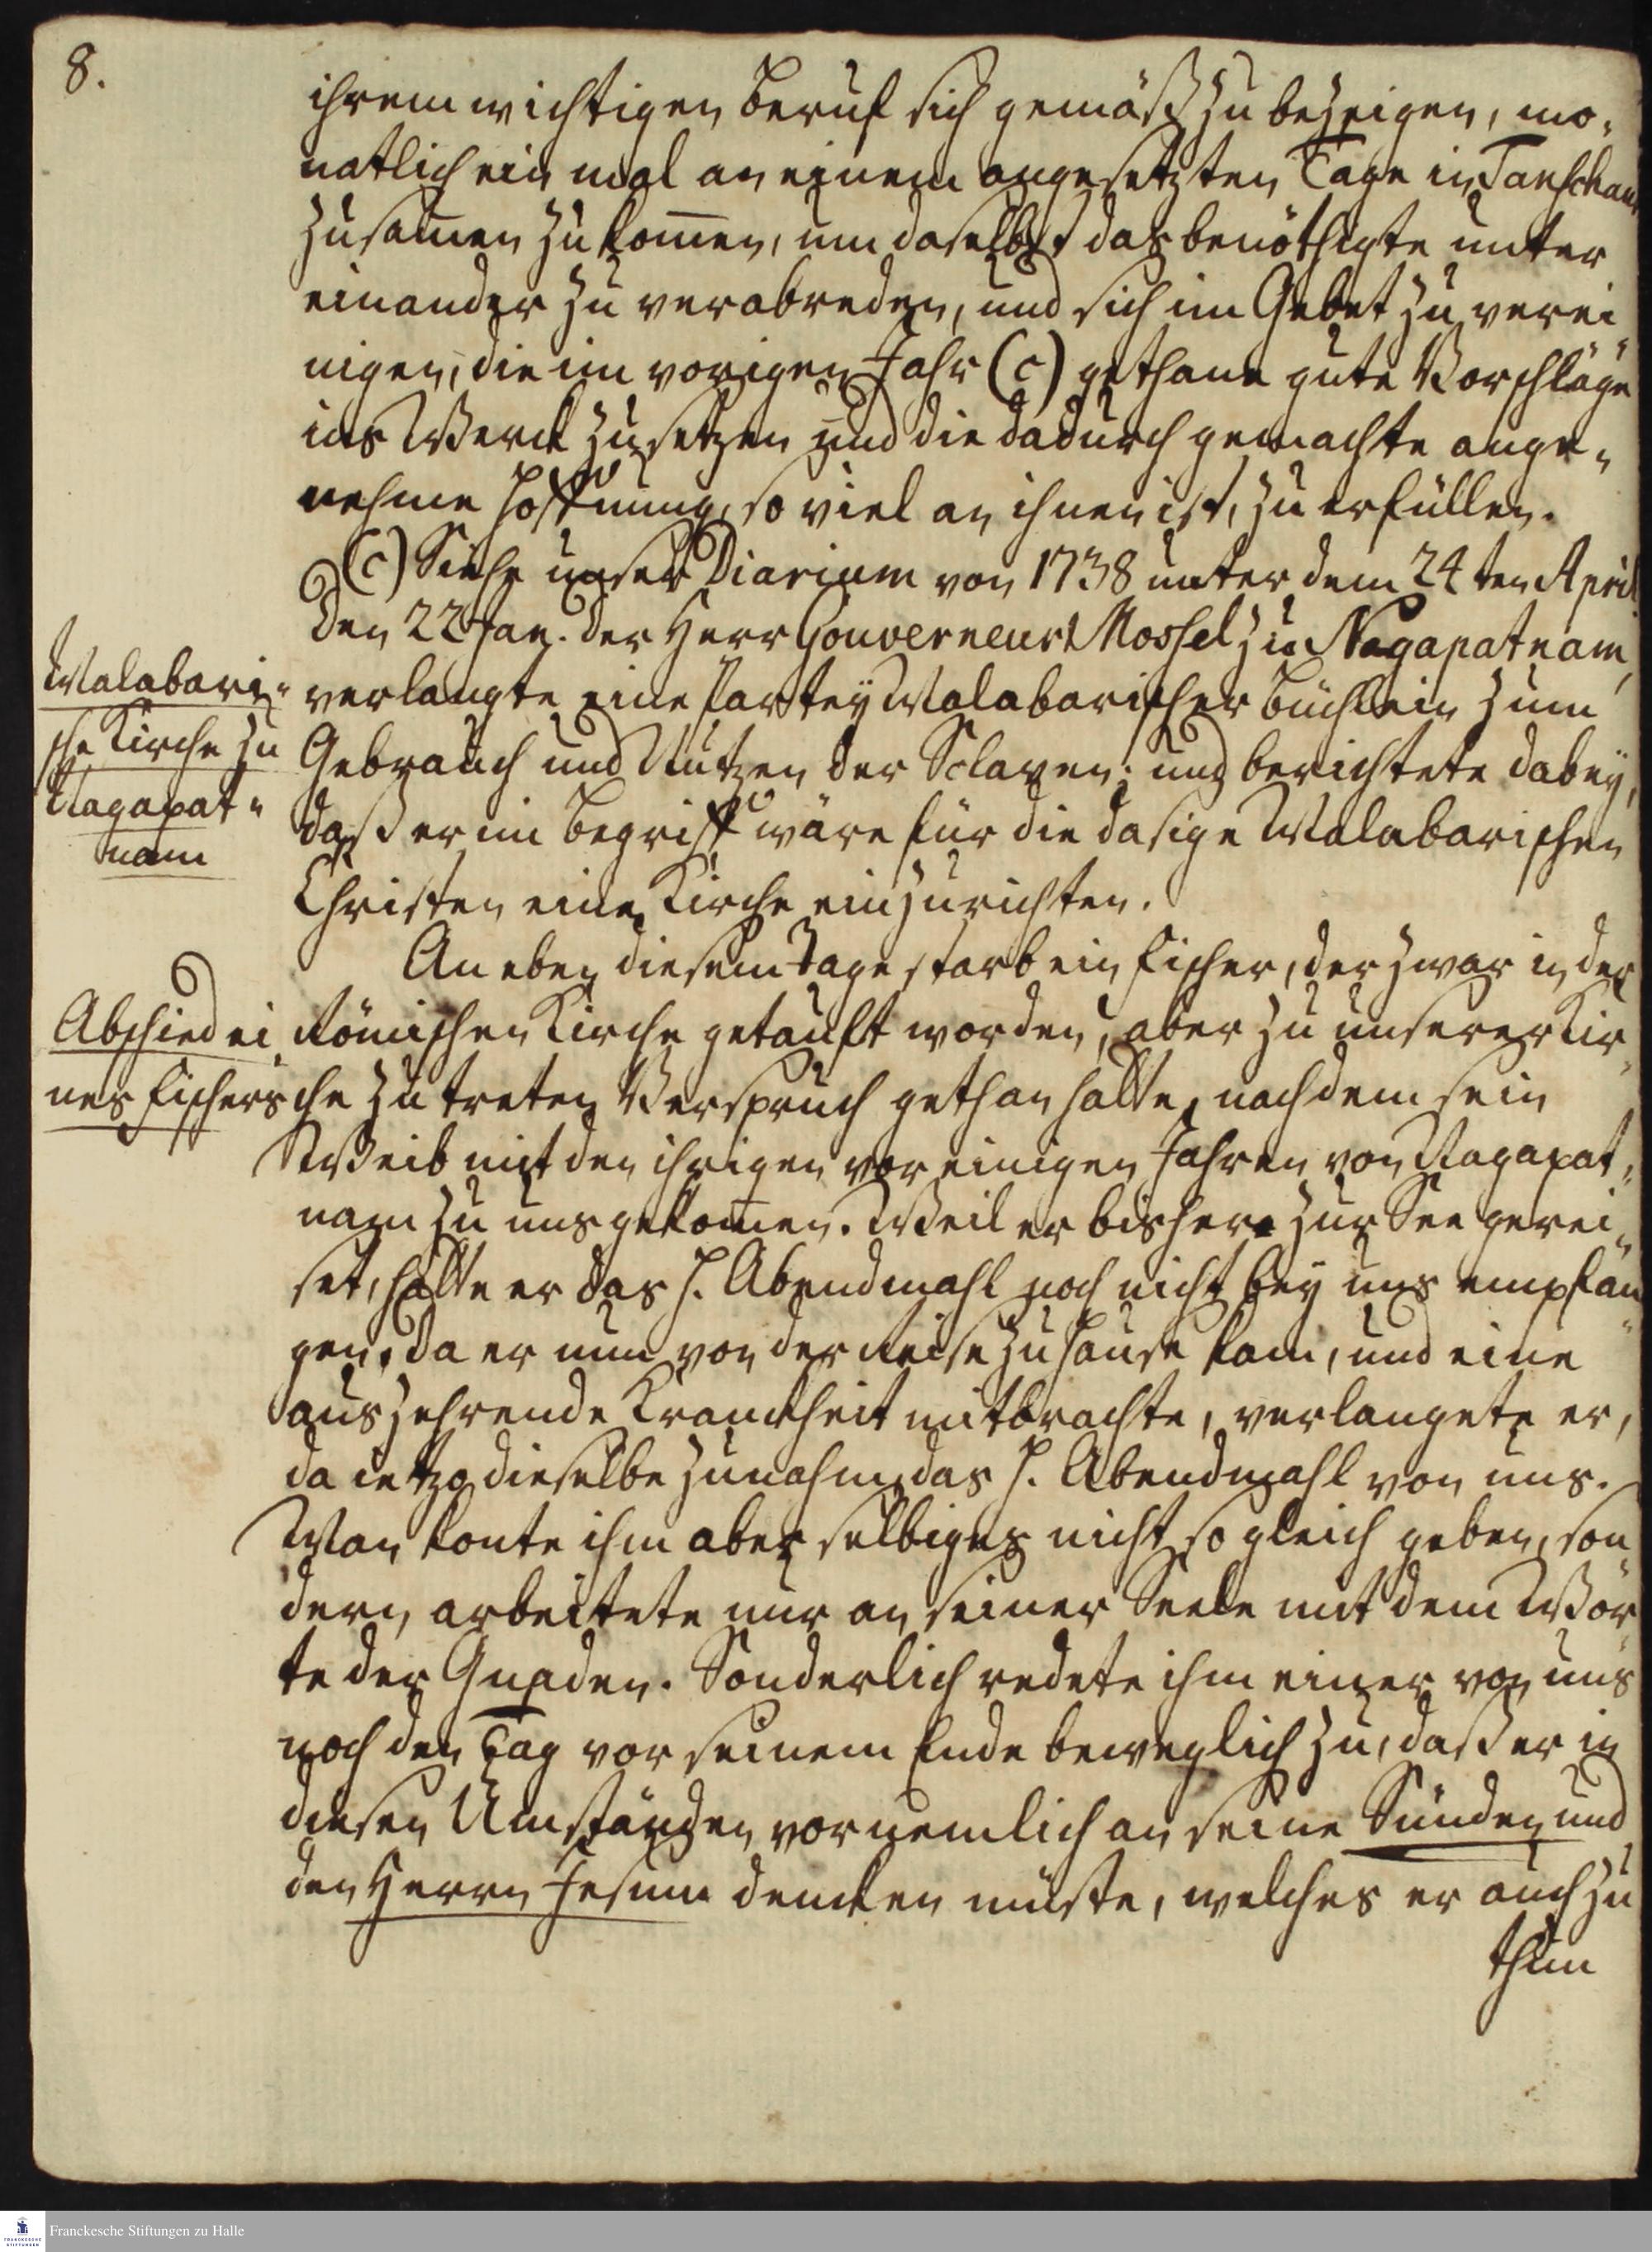 8.
ihrem wichtigen Beruf sich gemäß zu bezeigen, mo„
natlich ein mal an einem angesetzten Tage in Tanschaur
zusam̄en zu kom̄en, um daselbst das benöthigte unter
einander zu verabreden, und sich im Gebet zu verei„
nigen, die im vorigen Jahr (c) gethane gute Vorschläge
ins Werck zu setzen und die dadurch gemachte ange„
nehme Hoffnung, so viel an ihnen ist, zu erfüllen.
(c) Siehe unser Diarium von 1738 unter dem 24ten April
Malabari„
sche Kirche zu
Nagapat„
nam
Den 22 Jan. der Herr Gouverneur Mossel zu Nagapatnam,
verlangte eine Partey Malabarischer Büchlein zum
Gebrauch und Nutzen der Sclaven; und berichtete dabey,
daß er im Begriff wäre für die dasige Malabarischen
Christen eine Kirche einzurichten.
Abschied ei„
nes Fischers
An eben diesem Tage starb ein Fischer, der zwar in der
Römischen Kirche getauft worden, aber zu unserer Kir„
che zu treten Verspruch gethan hatte, nachdem sein
Weib mit den ihrigen vor einigen Jahren von Nagapat„
nam zu uns gekom̄en. Weil er bisher zur See gerei„
set, hatte er das H. Abendmahl noch nicht bey uns empfan„
gen. Da er nun von der Reise zu Hause kam, und eine
auszehrende Kranckheit mitbrachte, verlangete er,
da ietzo dieselbe zunahm, das H. Abendmahl von uns.
Man konte ihm aber selbiges nicht so gleich geben, son„
dern arbeitete nur an seiner Seele mit dem Wor„
te der Gnaden. Sonderlich redete ihm einer von uns
noch den Tag vor seinem Ende beweglich zu, daß er in
diesen Umständen vornemlich an seine Sünden und
den Herrn Jesum dencken müste, welches er auch zu
thun
Franckesche Stiftungen zu Halle
FRANCKESCHE
STIFTUNGEN